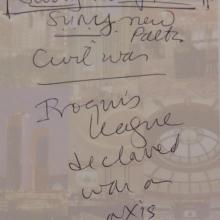 SUNY new
Paltz
Civil war
Iroquis
League
declared
war on
axis